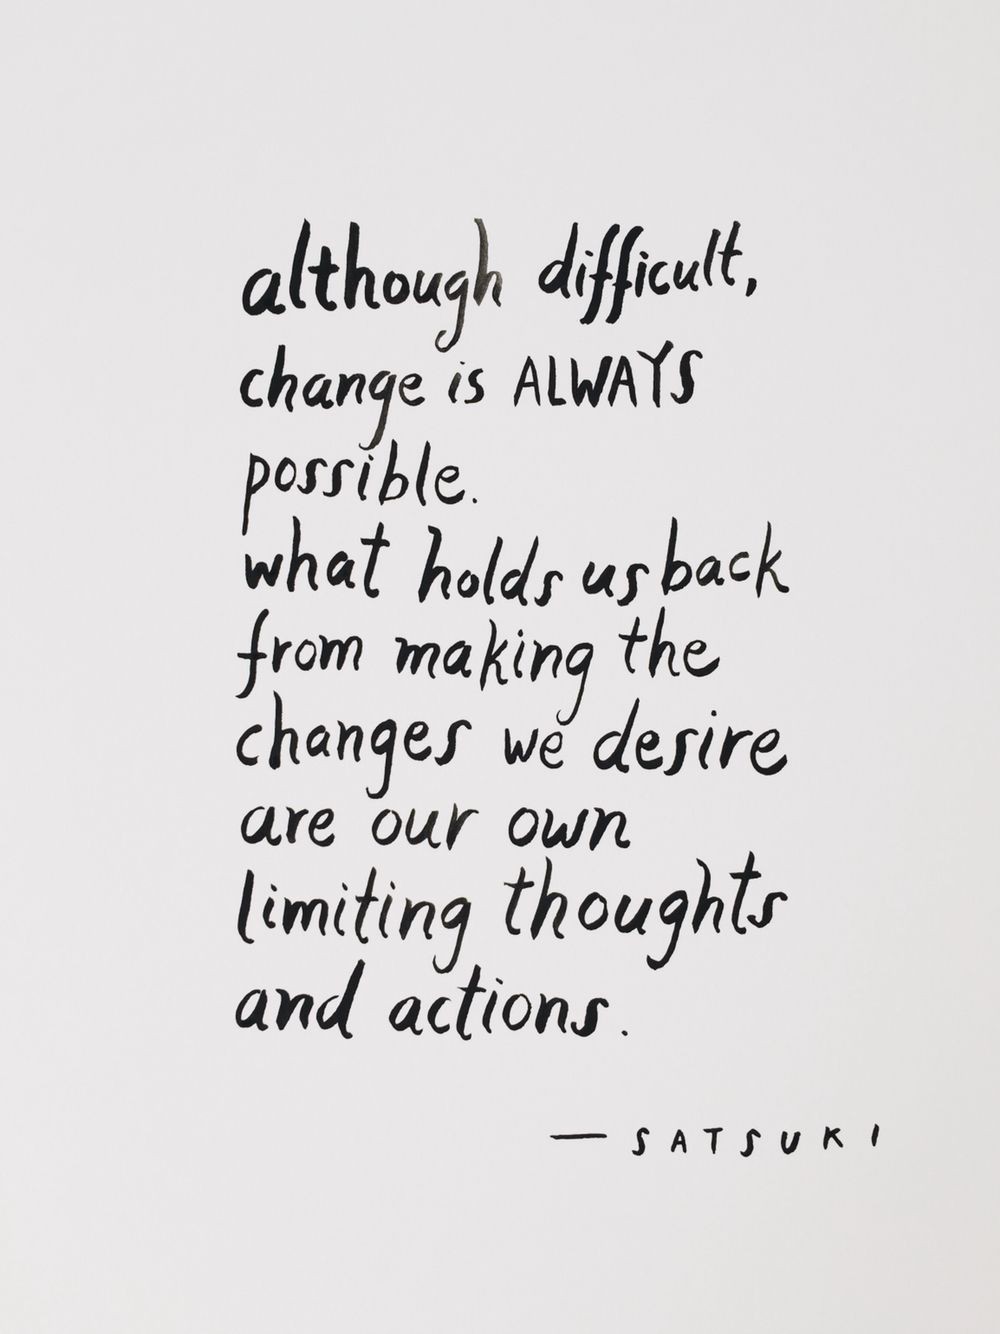 although difficult,
change is ALWAYS
possible.
what holds us back
from making the
changes we desire
are our own
limiting thoughts
and actions.
— SATSUKI